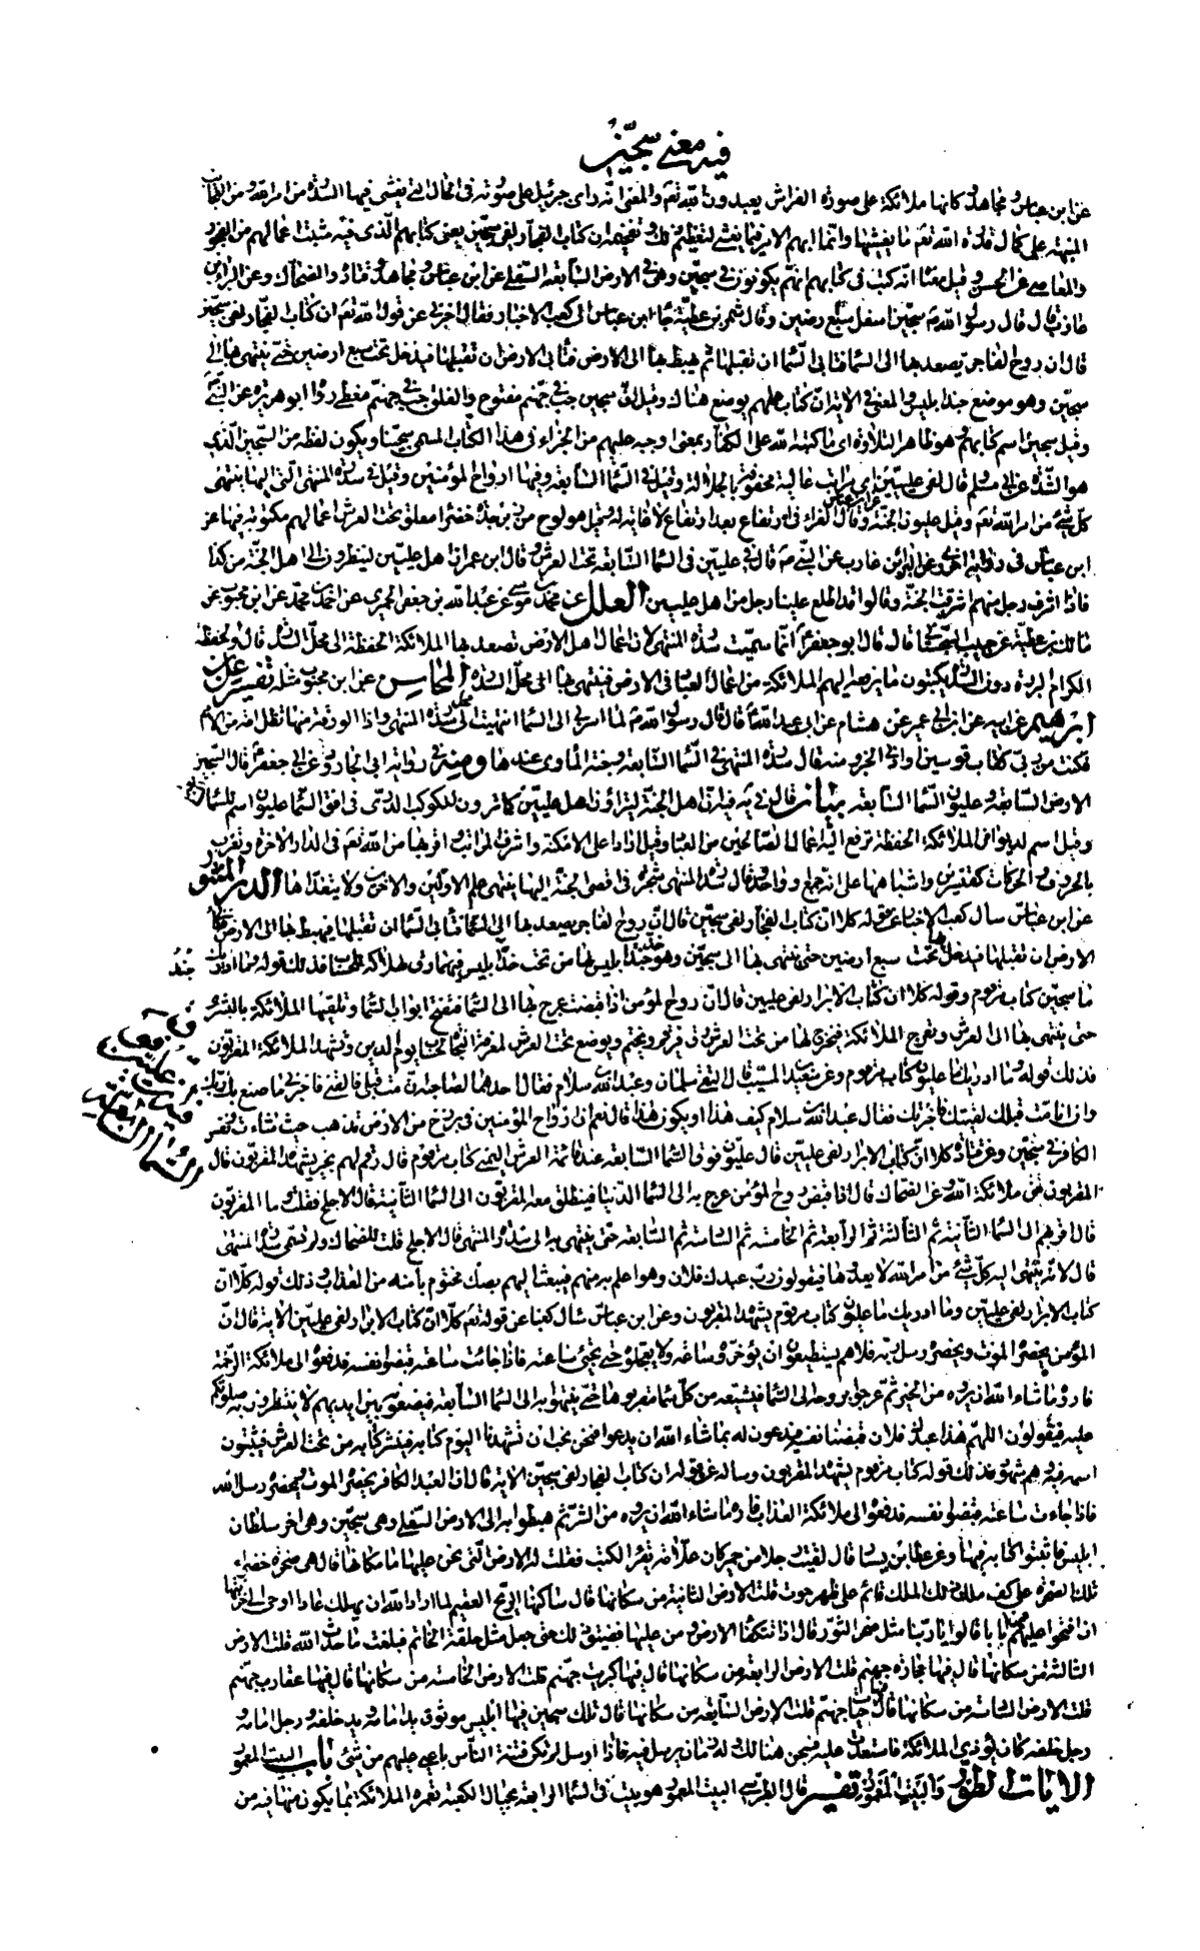 فيه معنى سجّين
عن ابن عباس و مجاهد كانها ملائكة على صورة الفراش يعبدون الله تعَ و المعنى انّه راى جبرئيل على صورته فى الحال التى يغشى فيها السّدرة من امر الله و من العجائب
المنبهة على كمال قدرة الله تعَ ما يغشيها و انّما ابهم الامر فيما يغشى لتعظيم ذلك و تفخيمه ان كتاب الفجّار لفى سجّين يعنى كتابهم الّذى فيه ثبت اعمالهم من الفجور
و المعاصى عن الحسن و قيل معناه انّه كتب فى كتابهم انّهم يكونون فى سجّين و هى فى الارض السّابعة السّفلى عن ابن عباس و مجاهد و قتادة و الضحّاك و عن البراء بن
عازب قال قال رسول الله صَ سجّين اسفل سبع ارضين و قال شمر بن عطيّة جاء ابن عباس الى كعب الاحبار فقال اخبرنى عن قول الله تعَ ان كتاب الفجّار لفى سجّين
قال ان روح الفاجر يصعد بها الى السّماء فتابى السّماء ان تقبلها ثم يهبط بها الى الارض فتابى الارض ان تقبلها فيدخل تحت سبع ارضين حتّى ينتهى بها الى
سجّين و هو موضع جند ابليس و المعنى فى الاية انّ كتاب عملهم يوضع هناك و قيل انّ سجين جبّ فى جهنّم مفتوح و الفلق جبّ فى جهنّم مغطّى رواه ابو هريرة عن النّبى صَ
و قيل سجين اسم كتابهم و هو ظاهر التلاوة اى ما كتبه الله على الكفّار بمعنى اوجبه عليهم من الجزاء فى هذا الكتاب المسمى سجّينا و يكون لفظه من السّجن الّذى
هو الشّدّة عن ابى مسلم قال لفى علّيّين اى مراتب عالية محفوفة بالجلالة و قيل فى السّماء السّابعة و فيها ارواح المؤمنين و قيل فى سدرة المنتهى الّتى اليها ينتهى
كلّ شىء من امر الله تعَ و قيل علّيون الجنّة عن ابن عباس و قال الفرّاء فى ارتفاع بعد ارتفاع لا غاية له و قيل هو لوح من زبرجدة خضراء معلّق تحت العرش اعمالهم مكتوبة فيها عن
ابن عبّاس فى رواية اخرى و عن البراء بن عازب عن النّبى صَ قال فى علّيّين فى السّماء السّابعة تحت العرش و قال ابن عمر ان اهل علّيّين لينظرون الى اهل الجنّة من كذا
فاذا اشرف رجل منهم اشرقت الجنّة و قالوا قد اطلع علينا رجل من اهل عليّين العلل عن محمد بن موسى عن عبد الله بن جعفر الحميرى عن احمد بن محمّد عن ابن محبوب عن
مالك بن عطيّة عن حبيب السّجستانى قال قال ابو جعفرَ انّما سمّيت سدرة المنتهى لانّ اعمال اهل الارض تصعد بها الملائكة الحفظة الى محلّ السّدرة قال و الحفظة
الكرام البررة دون السّدرة يكتبون ما يرفعه اليهم الملائكة من اعمال العباد فى الارض فينتهى بها الى محلّ السّدرة المحاسن عن ابن محبوب مثله تفسير على بن
ابرهيم عن ابيه عن ابن ابى عمير عن هشام عن ابى عبد اللهَ قال قال رسول الله صَ لما اسرى بى الى السّماء انتهيت الى محل سدرة المنتهى و اذا الورقة منها تظلّ امّة من الامم
فكنت من ربّى كقاب قوسين او ادنى الخبر و منه قال سدرة المنتهى فى السّماء السّابعة و جنّة الماوى عندها و منه فى رواية ابى الجارود عن ابى جعفرَ قال السّجين
الارض السّابعة و عليّون السّماء السّابعة بيان قال فى يه فيه انّ اهل الجنّة ليتراؤن اهل علّيّين كما ترون الكوكب الدّرّى فى افق السّماء عليّون اسم للسّماء السابعة
و قيل اسم لديوان الملائكة الحفظة ترفع اليه اعمال الصّالحين من العباد و قيل اراد اعلى الامكنة و اشرف المراتب و اقربها من الله تعَ فى الدار الاخرة و تعرب
بالحروف و الحركات كقنسرين و اشباهها على انّه جمع او واحد و قال سدرة المنتهى شجرة فى اقصى الجنّة اليها ينتهى علم الاوّلين و الاخرين و لا يتعدّاها الدر المنثور
عن ابن عباس سأل كعب الاحبار عن قوله كلا انّ كتاب الفجّار لفى سجّين قال انّ روح الفاجر يصعد بها الى السّماء فتابى السّماء ان تقبلها فيهبط بها الى الارض فتابى
الارض ان تقبلها فيدخل بها تحت سبع ارضين حتى ينتهى بها الى سجّين و هو خدّ ابليس فيخرج لها من تحت خدّ ابليس
جند
ما سجّين كتاب مرقوم و قوله كلا ان كتاب الابرار لفى عليين قال انّ روح المؤمن اذا قبضت عرج بها الى السّماء فتفتح ابواب السّماء و تلقيها الملائكة بالبشرى
حتى ينتهى بها الى العرش و تعرج الملائكة فيخرج لها من تحت العرش رق فيرقم و يختم و يوضع تحت العرش لمعرفة النجاة لحساب يوم الدين و تشهد الملائكة المقربون
فذلك قوله و ما ادريك ما عليّون كتاب مرقوم و عن سعيد بن المسيّب قال التقى سلمان و عبد الله بن سلام فقال احدهما لصاحبه ان متّ قبلى فالقنى فاخبرنى ما صنع بك ربّك
و ان انا متّ قبلك لقيتك فاخبرتك فقال عبد الله بن سلام كيف هذا او يكون هذا قال نعم ان ارواح المؤمنين فى برزخ من الارض تذهب حيث شاءت و نفس
الكافر فى سجّين و عن قتادة كلا انّ كتاب الابرار لفى علّيّين قال علّيّون فوق السّماء السّابعة عند قائمة العرش اليمنى كتاب مرقوم قال رقم لهم بخير يشهده المقرّبون قال
المقربون من ملائكة الله و عن الضحاك قال اذا قبض روح المؤمن عرج به الى السّماء الدّنيا فينطلق معه المقرّبون الى السّماء الثّانية قال الاجلح فقلت و ما المقرّبون
قال اقربهم الى السّماء الثّانية ثم الثّالثة ثم الرابعة ثم الخامسة ثم السّادسة ثم السّابعة حتّى ينتهى به الى سدرة المنتهى قال الاجلح قلت للضحاك و لم تسمى سدرة المنتهى
قال لانّه ينتهى اليه كلّ شىء من امر الله لا يعدوها فيقولون ربّ عبدك فلان و هو اعلم به منهم فيبعث اليهم بصكّ مختوم بامنه من العذاب و ذلك قوله كلا ان
كتاب الابرار لفى علّيّين و ما ادريك ما عليّون كتاب مرقوم يشهده المقربون و عن ابن عباس سال كعبا عن قوله تعَ كلّا انّ كتاب الابرار لفى علّيّين الاية قال انّ
المؤمن يحضره الموت و يحضره رسل ربّه فلا هم يستطيعون ان يؤخّروه ساعة و لا يعجّلوه حتى يجىء ساعته فاذا جائت ساعته قبضوا نفسه فدفعوه الى ملائكة الرّحمة
فاروه ما شاء الله ان يروه من الخير ثم عرجوا بروحه الى السّماء فيشيّعه من كلّ سماء مقربوها حتى ينتهوا به الى السّماء السّابعة فيضعونه بين ايديهم لا ينتظرون به صلوتكم
عليه فيقولون اللهمّ هذا عبدك فلان قبضنا نفسه فيدعون له بما شاء الله ان يدعوا فنحن نحب ان تشهدنا اليوم كتابه فينشر كتابه من تحت العرش فيثبتون
اسمه فيه و هم شهود فذلك قوله كتاب مرقوم يشهده المقربون و ساله عن قوله ان كتاب الفجار لفى سجّين الاية قال انّ العبد الكافر يحضره الموت و يحضره رسل الله
فاذا جاءت ساعته قبضوا نفسه فدفعوه الى ملائكة العذاب فاروه ما شاء الله ان يروه من الشرّ ثم هبطوا به الى الارض السّفلى و هى سجّين و هى اخر سلطان
ابليس فاثبتوا كتابه فيها و عن عطاء بن يسار قال لقيت رجلا من حمير كان علّامة يقرء الكتب فقلت له الارض الّتى نحن عليها ما سكانها قال هى على صخرة خضراء
تلك الصخرة على كف ملك ذلك الملك قائم على ظهر حوت قلت الارض الثانية من سكانها قال ساكنها الرّيح العقيم لما اراد الله ان يهلك عادا اوحى الى خزنتها
ان افتحوا عليهم منها بابا قالوا يا ربّنا مثل منخر الثّور قال اذا تتكفأ الارض و من عليها فضيّق ذلك حتى جعل مثل حلقة الخاتم فبلغت ما حدّث الله قلت الارض
الثالثة من سكانها قال فيها حجارة جهنم قلت الارض الرابعة من سكانها قال فيها كبريت جهنّم قلت الارض الخامسة من سكانها قال فيها عقارب جهنّم
قلت الارض السّادسة من سكانها قال فيها حيّات جهنّم قلت الارض السّابعة من سكانها قال تلك سجين فيها ابليس موثوق يد امامه و يد خلفه و رجل امامه و
رجل خلفه كان يؤذى الملائكة فاستعدت عليه فسجن هنالك و له زمان يرسل فيه فاذا ارسل لم تكن فتنة النّاس باعيى عليهم من شىء باب البيت المعمور
الايات الطور وَ الْبَيْتِ الْمَعْمُورِ تفسير قال الطّبرسى البيت المعمور هو بيت فى السّماء الرابعة بحيال الكعبة تعمره الملائكة بما يكون منها فيه من
السّماء السّابعة